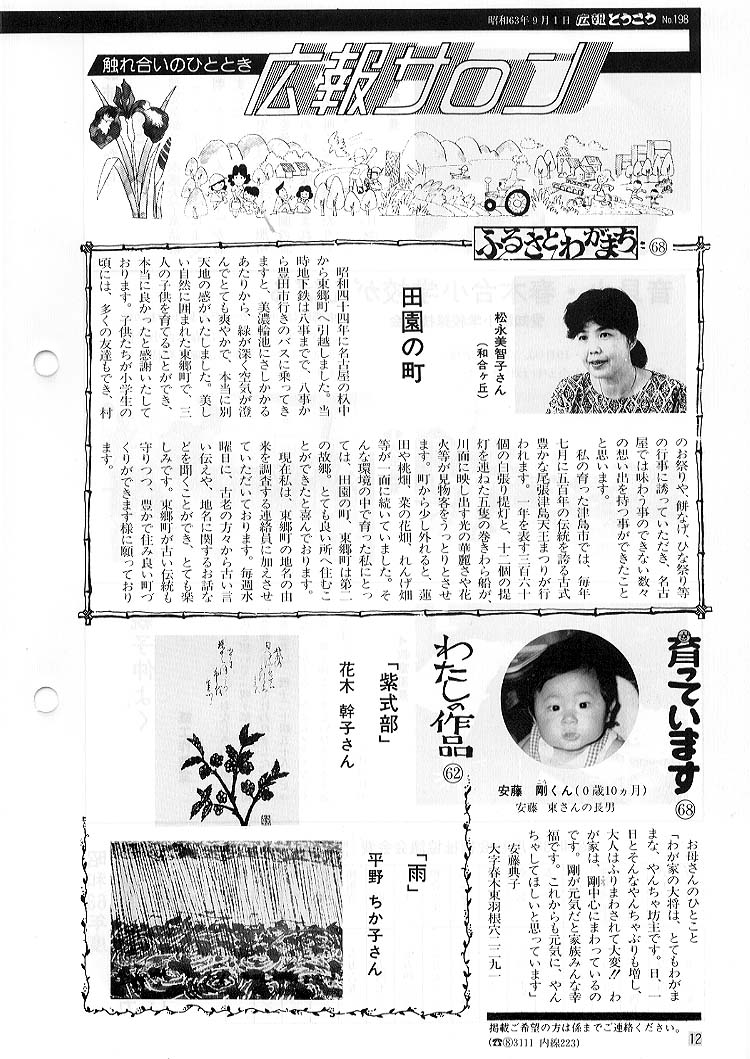 昭和63年9月1日 広報とうごう No.198
触れ合いのひととき
広報サロン
ふるさとわがまち
68
松永美智子さん
(和合ヶ丘)
田園の町
昭和四十四年に名古屋の杁中
から東郷町へ引越しました。当
時地下鉄は八事までで、八事か
ら豊田市行きのバスに乗ってき
ますと、美濃輪池にさしかかる
あたりから、緑が深く空気が澄
んでとても爽やかで、本当に別
天地の感がいたしました。美し
い自然に囲まれた東郷町で、三
人の子供を育てることができ、
本当に良かったと感謝いたして
おります。子供たちが小学生の
頃には、多くの友達もでき、村
のお祭りや、餅なげ、ひな祭り等
の行事に誘っていただき、名古
屋では味わう事のできない数々
の想い出を持つ事ができたこと
と思います。
私の育った津島市では、毎年
七月に五百年の伝統を誇る古式
豊かな尾張津島天王まつりが行
われます。一年を表す三百六十
個の白張り提灯と、十二個の提
灯を連ねた五隻の巻きわら船が、
川面に映し出す光の華麗さや花
火等が見物客をうっとりとさせ
ます。町から少し外れると、蓮
田や桃畑、菜の花畑、れんげ畑
等が一面に続いていました。そ
んな環境の中で育った私にとっ
ては、田園の町、東郷町は第二
の故郷。とても良い所へ住むこ
とができたと喜んでおります。
現在私は、東郷町の地名の由
来を調査する連絡員に加えさせ
ていただいております。毎週水
曜日に、古老の方々から古い言
い伝えや、地名に関するお話な
どを聞くことができ、とても楽
しみです。東郷町が古い伝統も
守りつつ、豊かで住み良い町づ
くりができます様に願っており
ます。
育っています
68
安藤 剛くん(0歳10ヵ月)
安藤 東さんの長男
お母さんのひとこと
「わが家の大将は、とてもわがま
まな、やんちゃ坊主です。日、一
日とそんなやんちゃぶりも増し、
大人はふりまわされて大変!! わ
が家は、剛中心にまわっているの
です。剛が元気だと家族みんな幸
福です。これからも元気に、やん
ちゃしてほしいと思っています」
安藤典子
大字春木東羽根穴二二九一
わたしの作品
62
「紫式部」
花木 幹子さん
「雨」
平野 ちか子さん
掲載ご希望の方は係までご連絡ください。
(☎⑧3111 内線223)
12